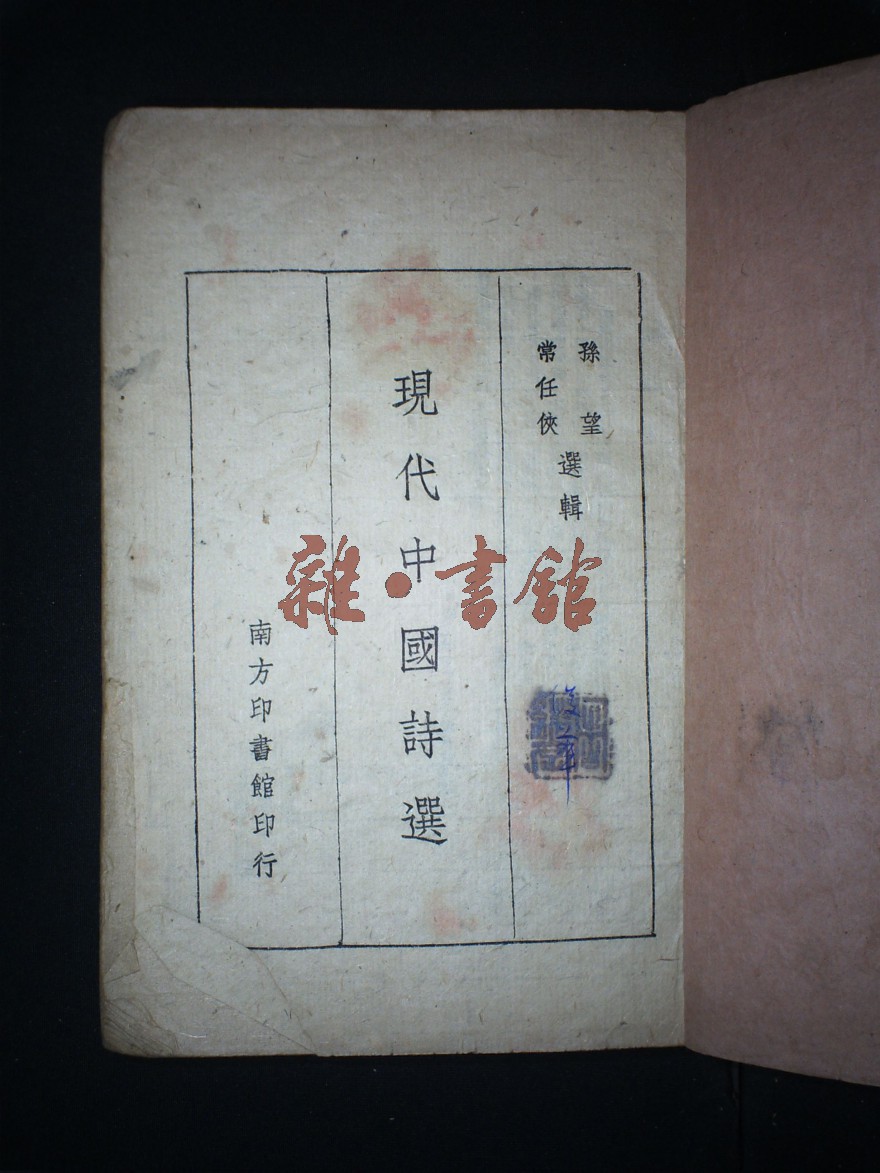 孫望
常任俠
選輯
現代中國詩選
南方印書館印行
雜·書館